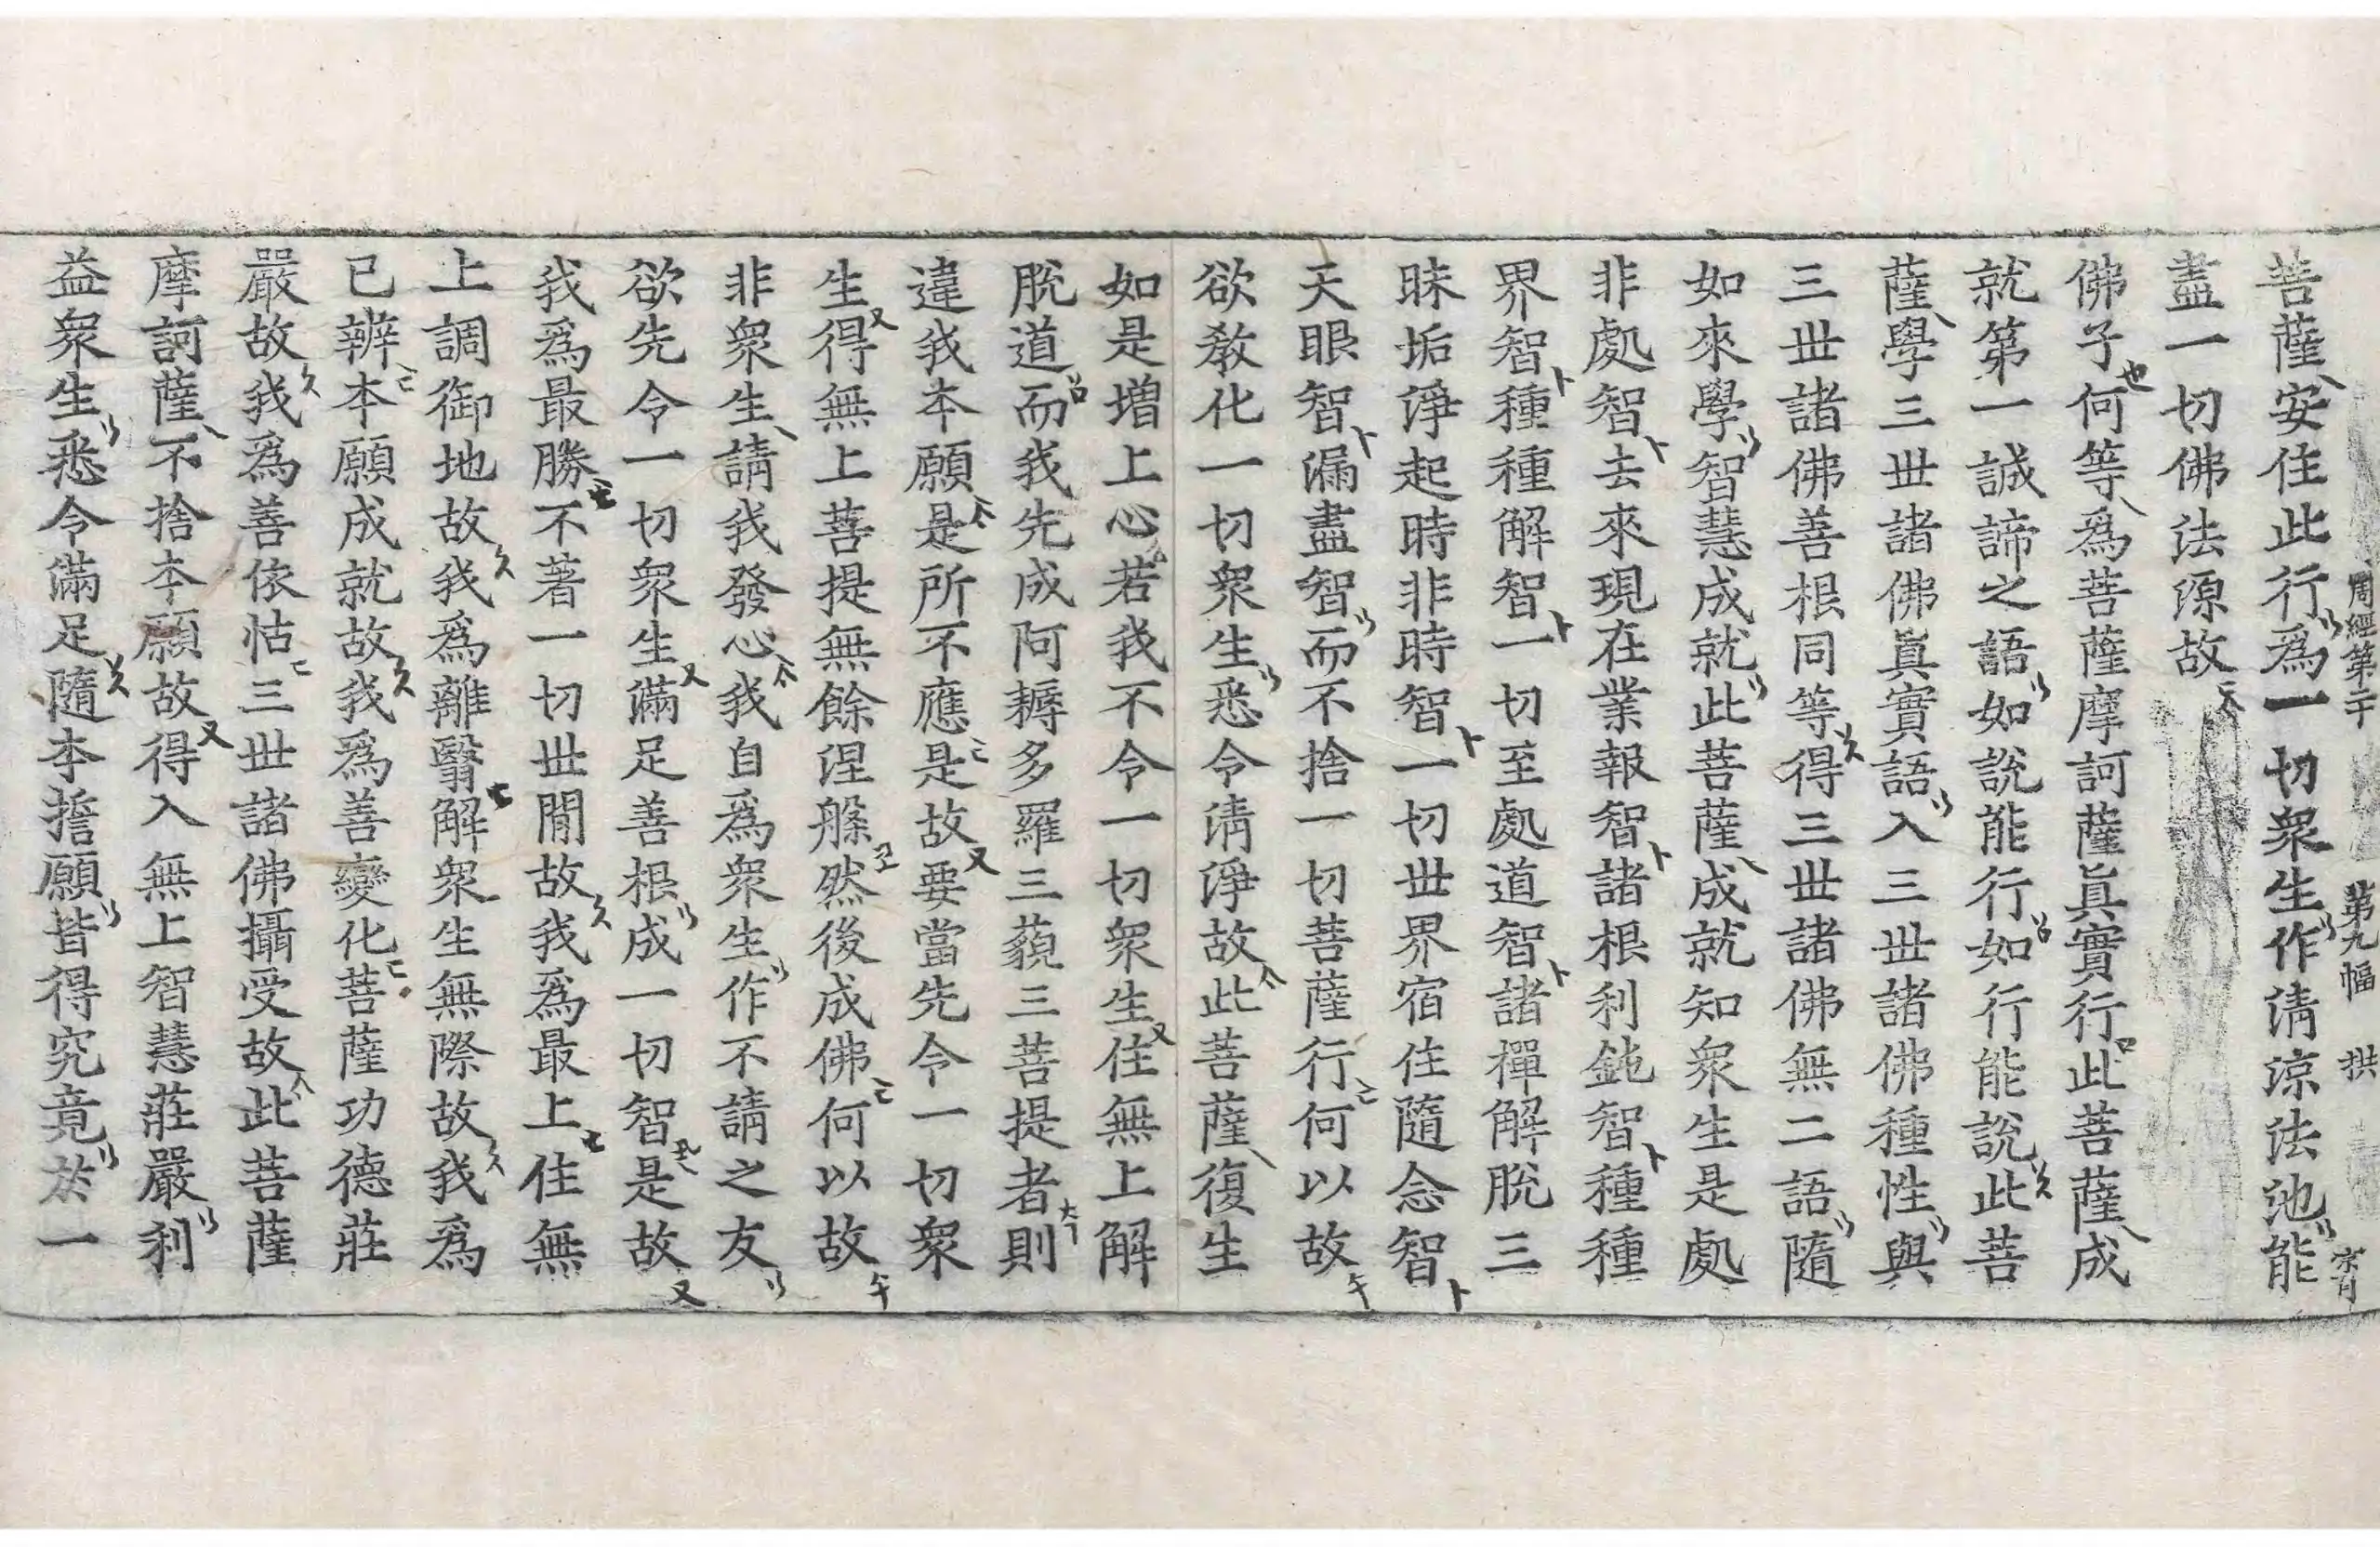 周經第二十 第九幅 拱
菩薩安住此行爲一切衆生作淸涼法池能
盡一切佛法源故
佛子何等爲菩薩摩訶薩眞實行此菩薩成
就第一誠諦之語如說能行如行能說此菩
薩學三世諸佛眞實語入三世諸佛種性與
三世諸佛善根同等得三世諸佛無二語隨
如來學智慧成就此菩薩成就知衆生是處
非處智去來現在業報智諸根利鈍智種種
界智種種解智一切至處道智諸禪解脫三
昧垢淨起時非時智一切世界宿住隨念智
天眼智漏盡智而不捨一切菩薩行何以故
欲教化一切衆生悉令淸淨故此菩薩復生
如是增上心若我不令一切衆生住無上解
脫道而我先成阿耨多羅三藐三菩提者則
違我本願是所不應是故要當先令一切衆
生得無上菩提無餘涅槃然後成佛何以故
非衆生請我發心我自爲衆生作不請之友
欲先令一切衆生滿足善根成一切智是故
我爲最勝不著一切世間故我爲最上住無
上調御地故我爲離翳解衆生無際故我爲
已辦本願成就故我爲善變化菩薩功德莊
嚴故我爲善依怙三世諸佛攝受故此菩薩
摩訶薩不捨本願故得入無上智慧莊嚴利
益衆生悉令滿足隨本擔願皆得究竟於一